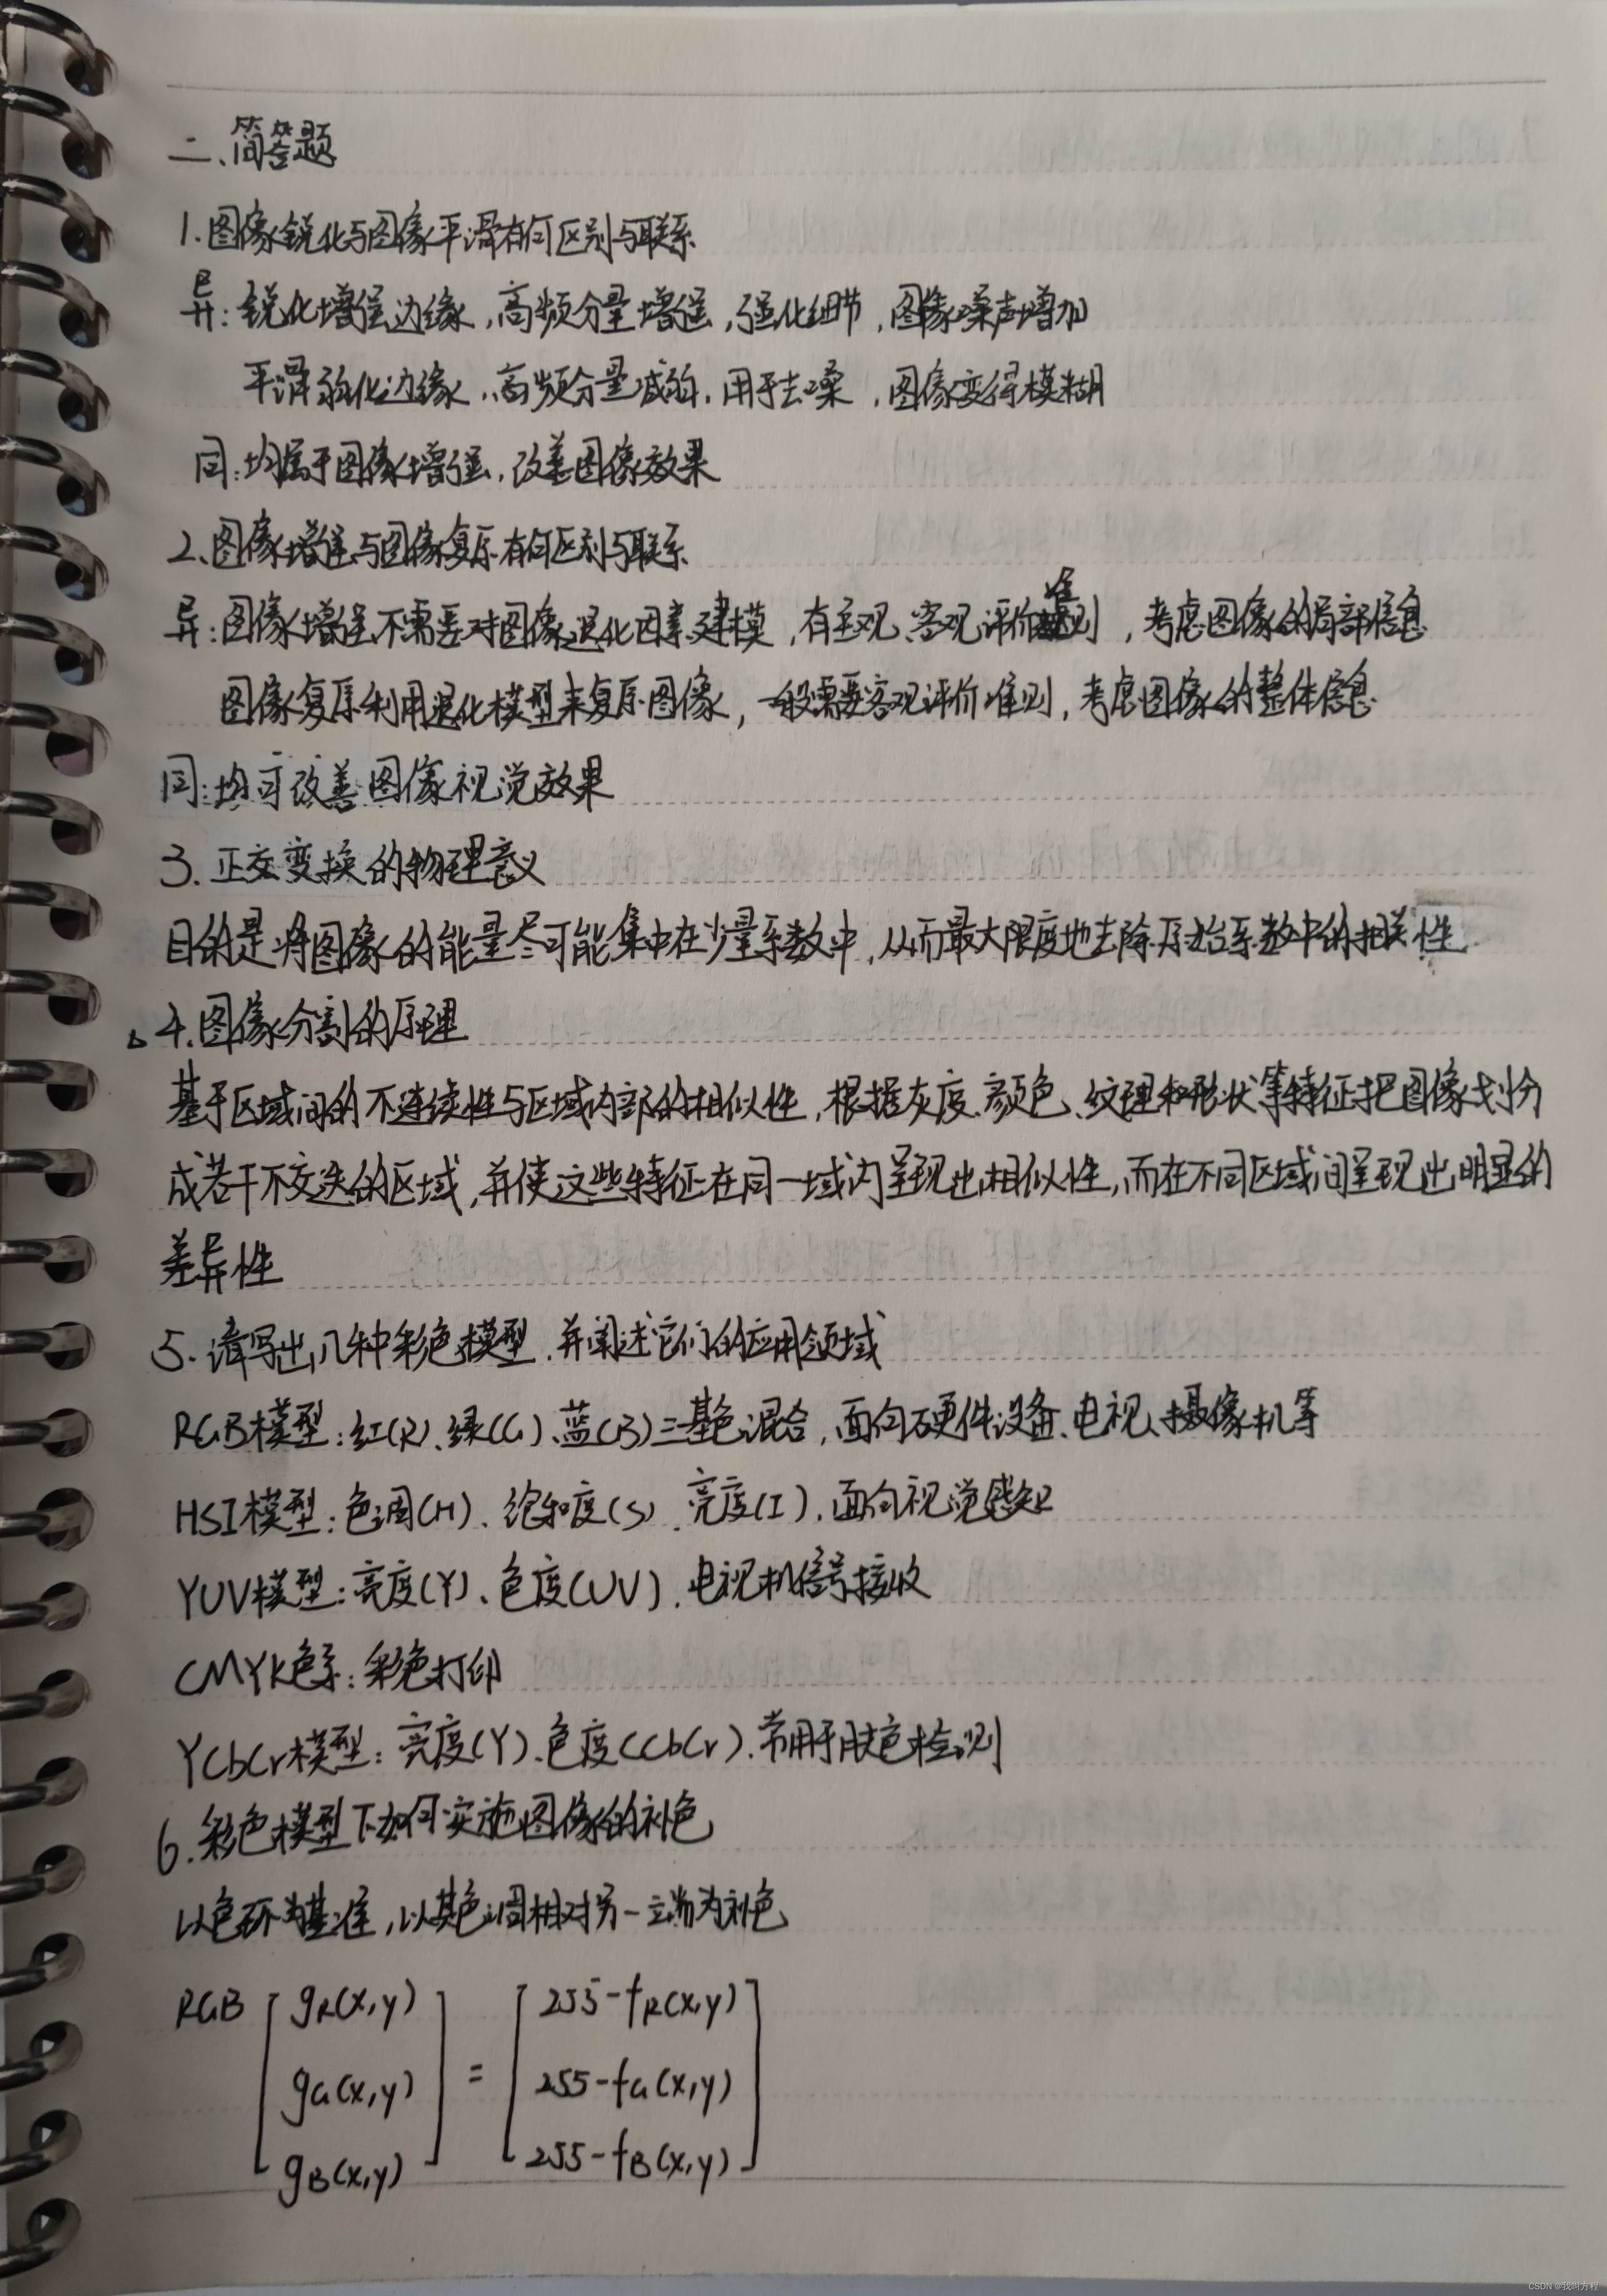 二、简答题
1.图像锐化与图像平滑有何区别与联系
异：锐化增强边缘，高频分量增强，强化细节，图像噪声增加
平滑弱化边缘，高频分量减弱，用于去噪，图像变得模糊
同：均属于图像增强，改善图像效果
2、图像增强与图像复原有何区别与联系
异：图像增强不需要对图像退化因素建模，有主观、客观评价准则，考虑图像的局部信息
图像复原利用退化模型来复原图像，一般需要客观评价准则，考虑图像的整体信息
同：均可改善图像视觉效果
3.正交变换的物理意义
目的是将图像的能量尽可能集中在少量系数中，从而最大限度地去除原始系数中的相关性
△4.图像分割的原理
基于区域间的不连续性与区域内部的相似性，根据灰度、颜色、纹理和形状等特征把图像划分
成若干不交迭的区域，并使这些特征在同一域内呈现出相似性，而在不同区域间呈现出明显的
差异性
5.请写出几种彩色模型，并阐述它们的应用领域
RGB模型：红(R)、绿(G)、蓝(B)三基色混合，面向硬件设备、电视、摄像机等
HSI模型：色调(H)、饱和度(S)、亮度(I)，面向视觉感知
YUV模型：亮度(Y)、色度(UV)，电视机信号接收
CMYK色系：彩色打印
YCbCr模型：亮度(Y)、色度(CbCr)，常用于肤色检测
6.彩色模型下如何实施图像的补色
以色环为基准，以其色调相对另一端为补色
RGB [gR(x,y)] = [255-fR(x,y)]
[gG(x,y)] [255-fG(x,y)]
[gB(x,y)] [255-fB(x,y)]
CSDN @我叫方程